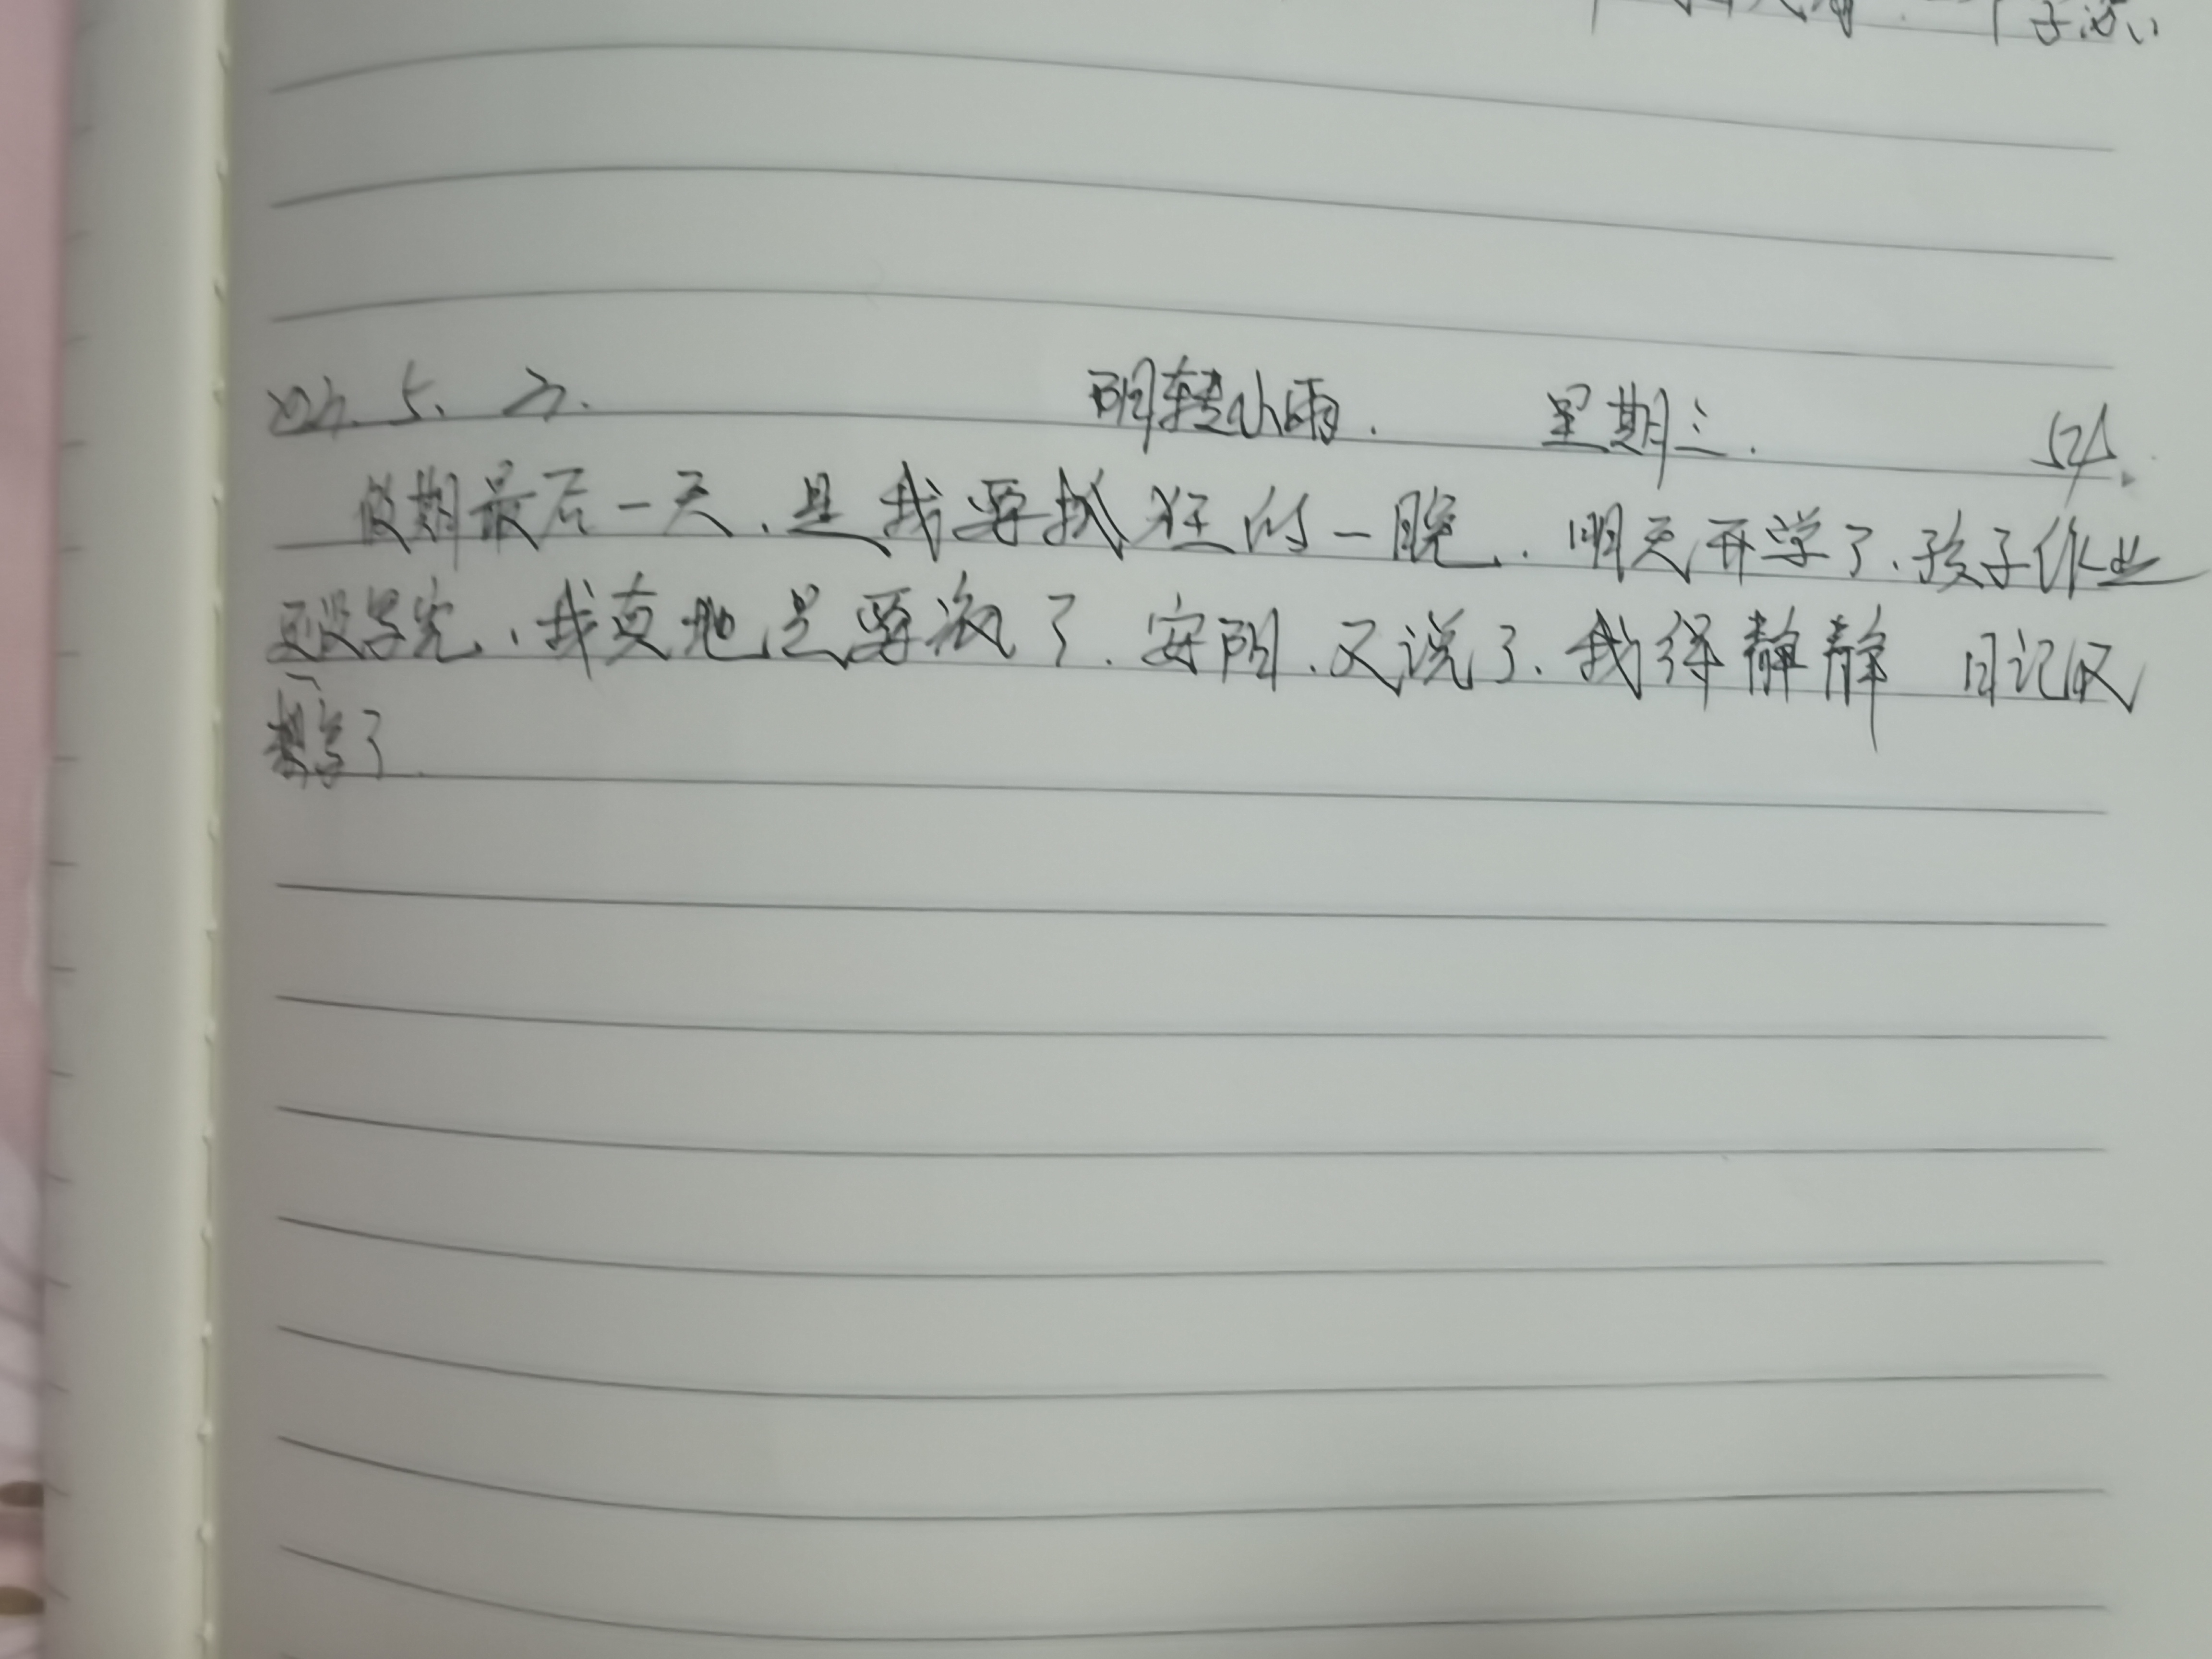 5.
阴转小雨. 星期三.
假期最后一天、是我要抓狂的一晚. 明天开学了、孩子作业
还没写完、我真地是要疯了. 安阳、又说了、我得静静 日记又
了.